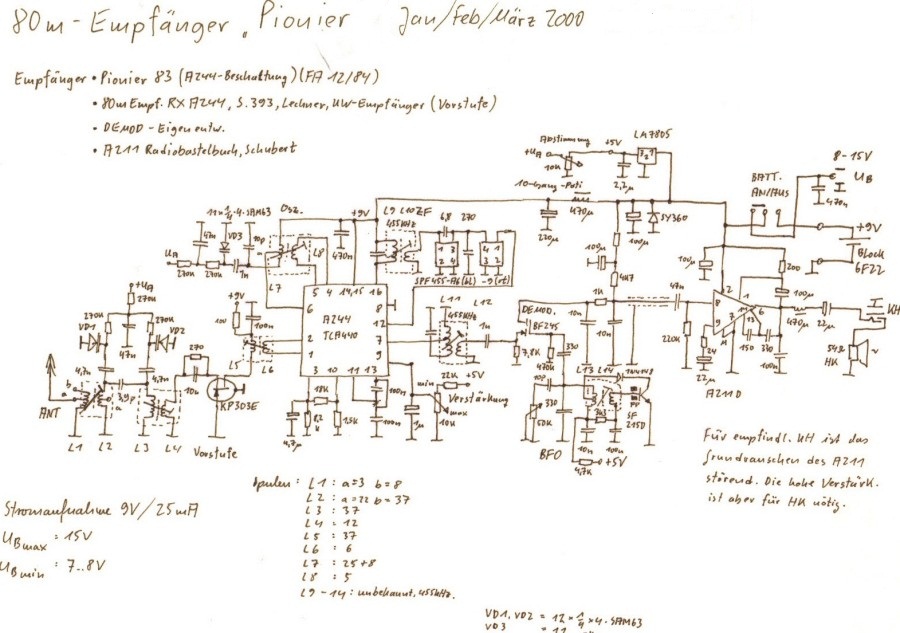 80m-Empfänger „Pionier Jan/Feb/März 2000
Empfänger • Pionier 83 (A244-Beschaltung) (FA 12/84)
• 80m Empf. RX A244, S.393, Lechner, KW-Empfänger (Vorstufe)
• DEMOD - Eigenentw.
• A211 Radiobastelbuch, Schubert
Abstimmung
LA7805
+5V
+UA
10K
2,2µ
10-Gang-Poti
8-15V
UB
BATT.
AN/AUS
470n
+9V
Block
6F22
11×1/4·4·SAM63
Osz.
47n
VD3
UA
270K
270K
1n
L7
L8
+9V
470n
L9 L10 ZF
455kHz
6,8
270
SPF455-A6(bl) -9(rt)
220µ
470µ
100µ
SY360
100µ
4K7
10µ
200
100µ
+UA
270K
270K
270K
VD1
VD2
47n
4,7n
3,9p
4,7n
b
a
ANT
L1 L2 L3 L4
Vorstufe
270
10n
KP303E
+9V
100n
L5
L6
5 4 14,15 16
6
8
A244
TCA440
12
2
7
1
9
3 10 11 13
L11 L12
455kHz
1n
DEMOD.
BF245
1K
47n
47n
10n
10n
220K
24
22µ
A211D
150
330
100n
470µ
22µ
KH
54Ω
HK
18K
8,2K
15K
4,7µ
100n
100n
1µ
min
max
22K
+5V
Verstärkung
10K
7,8K
470K
330
10p
330
50K
BFO
L13 L14
1N4148
SF
215D
10n
100n
4,7K
+5V
Für empfindl. KH ist das
Grundrauschen des A211
störend. Die hohe Verstärk.
ist aber für HK nötig.
Stromaufnahme 9V/25mA
UBmax = 15V
UBmin = 7..8V
Spulen: L1 : a=3 b=8
L2 : a=22 b=37
L3 : 37
L4 = 12
L5 : 37
L6 : 6
L7 : 25+8
L8 : 5
L9-14 : unbekannt, 455kHz.
VD1, VD2 = 12×1/4×4·SAM63
VD3 = 11